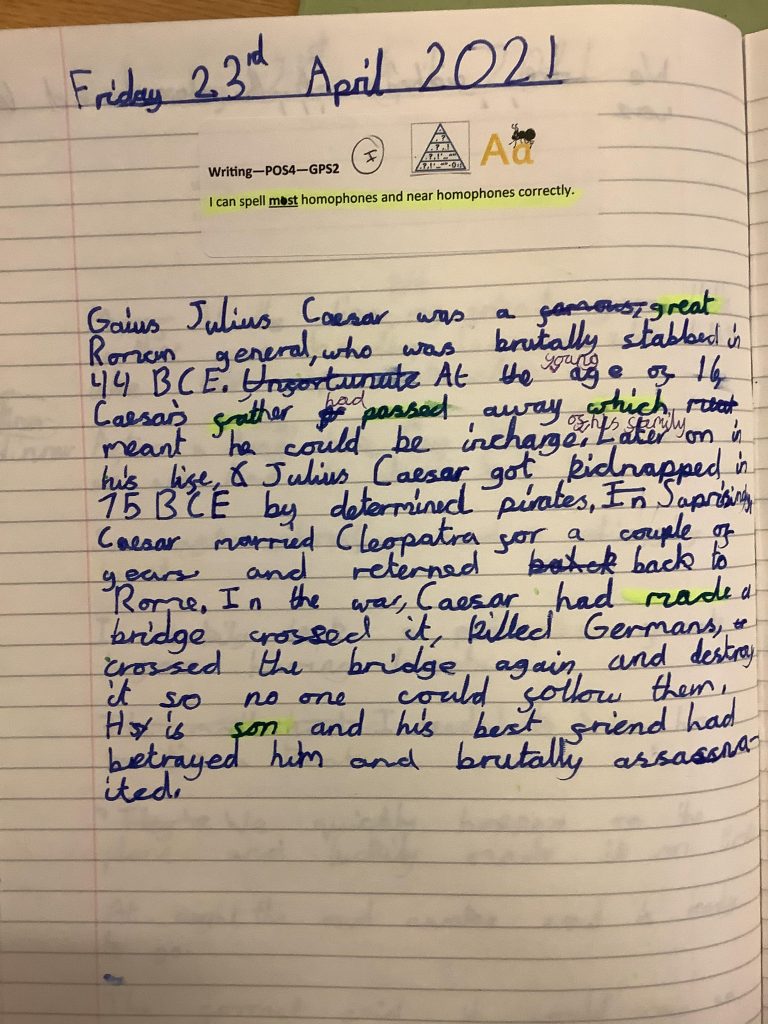 Friday 23rd April 2021
Aa
Writing—POS4—GPS2 I
I can spell most homophones and near homophones correctly.
Gaius Julius Caesar was a famous, great
Roman general, who was brutally stabbed in
young
44 BCE. Unfortunate At the age of 16,
had
Caesar's father passed away which
of his family
meant he could be incharge. Later on in
his life, Julius Caesar got kidnapped in
75 BCE by determined pirates. In Suprisingly
Caesar married Cleopatra for a couple of
years and returned back to
Rome. In the war, Caesar had made a
bridge crossed it, killed Germans,
crossed the bridge again and destroy
it so no one could follow them.
His son and his best friend had
betrayed him and brutally assassina-
ited.